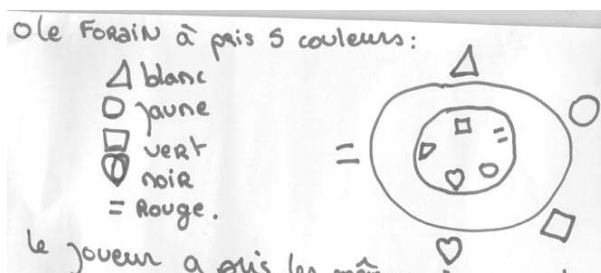 o le FORAIN à pris 5 couleurs:
blanc
jaune
vert
noir
= Rouge.
le joueur a pris les